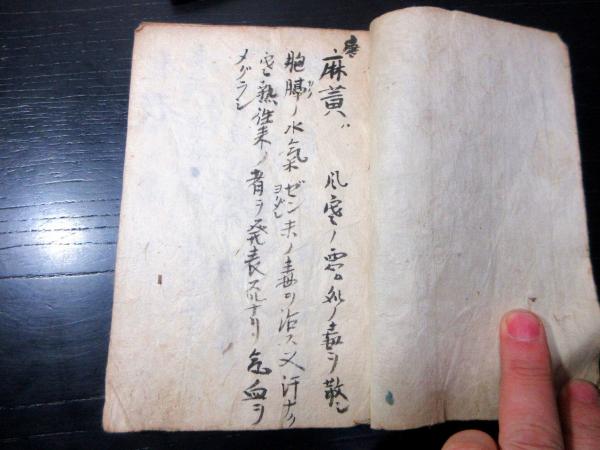 麻黄ハ 風寒ノ毒ヲ散シ
ノ水氣ゼンノ毒ヲ治ス又汗ナク
寒熱往来ノ者ヲ発表スルナリ 気血ヲ
メグラシ